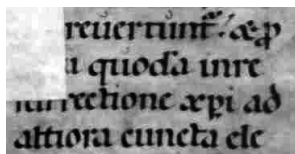 reuertunt᷑. & ꝓ
a quodã inre
surrectione xp̄i ad
altiora cuncta ele